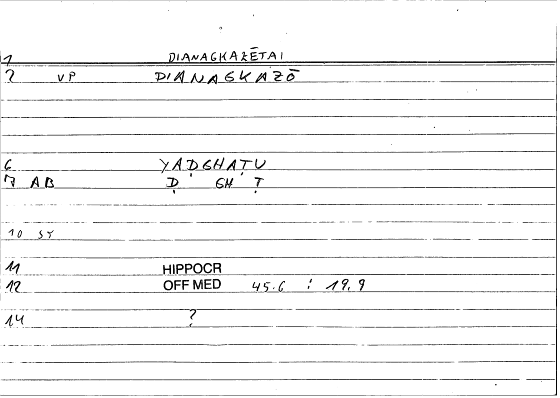 1 DIANAGKAZĒTAI
2 VP DIANAGKAZŌ
6 YAḌGHAṬU
7 AB Ḍ GH Ṭ
10 SY
11 HIPPOCR
12 OFF MED 45.6 : 19,9
14 ?